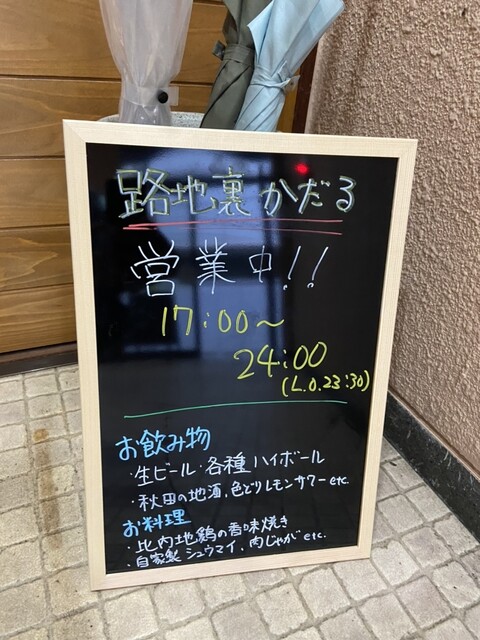 路地裏かだる
営業中!!
17:00～
24:00
(L.O.23:30)
お飲み物
・生ビール・各種ハイボール
・秋田の地酒、色どりレモンサワーetc.
お料理
・比内地鶏の香味焼き
・自家製シュウマイ、肉じゃがetc.